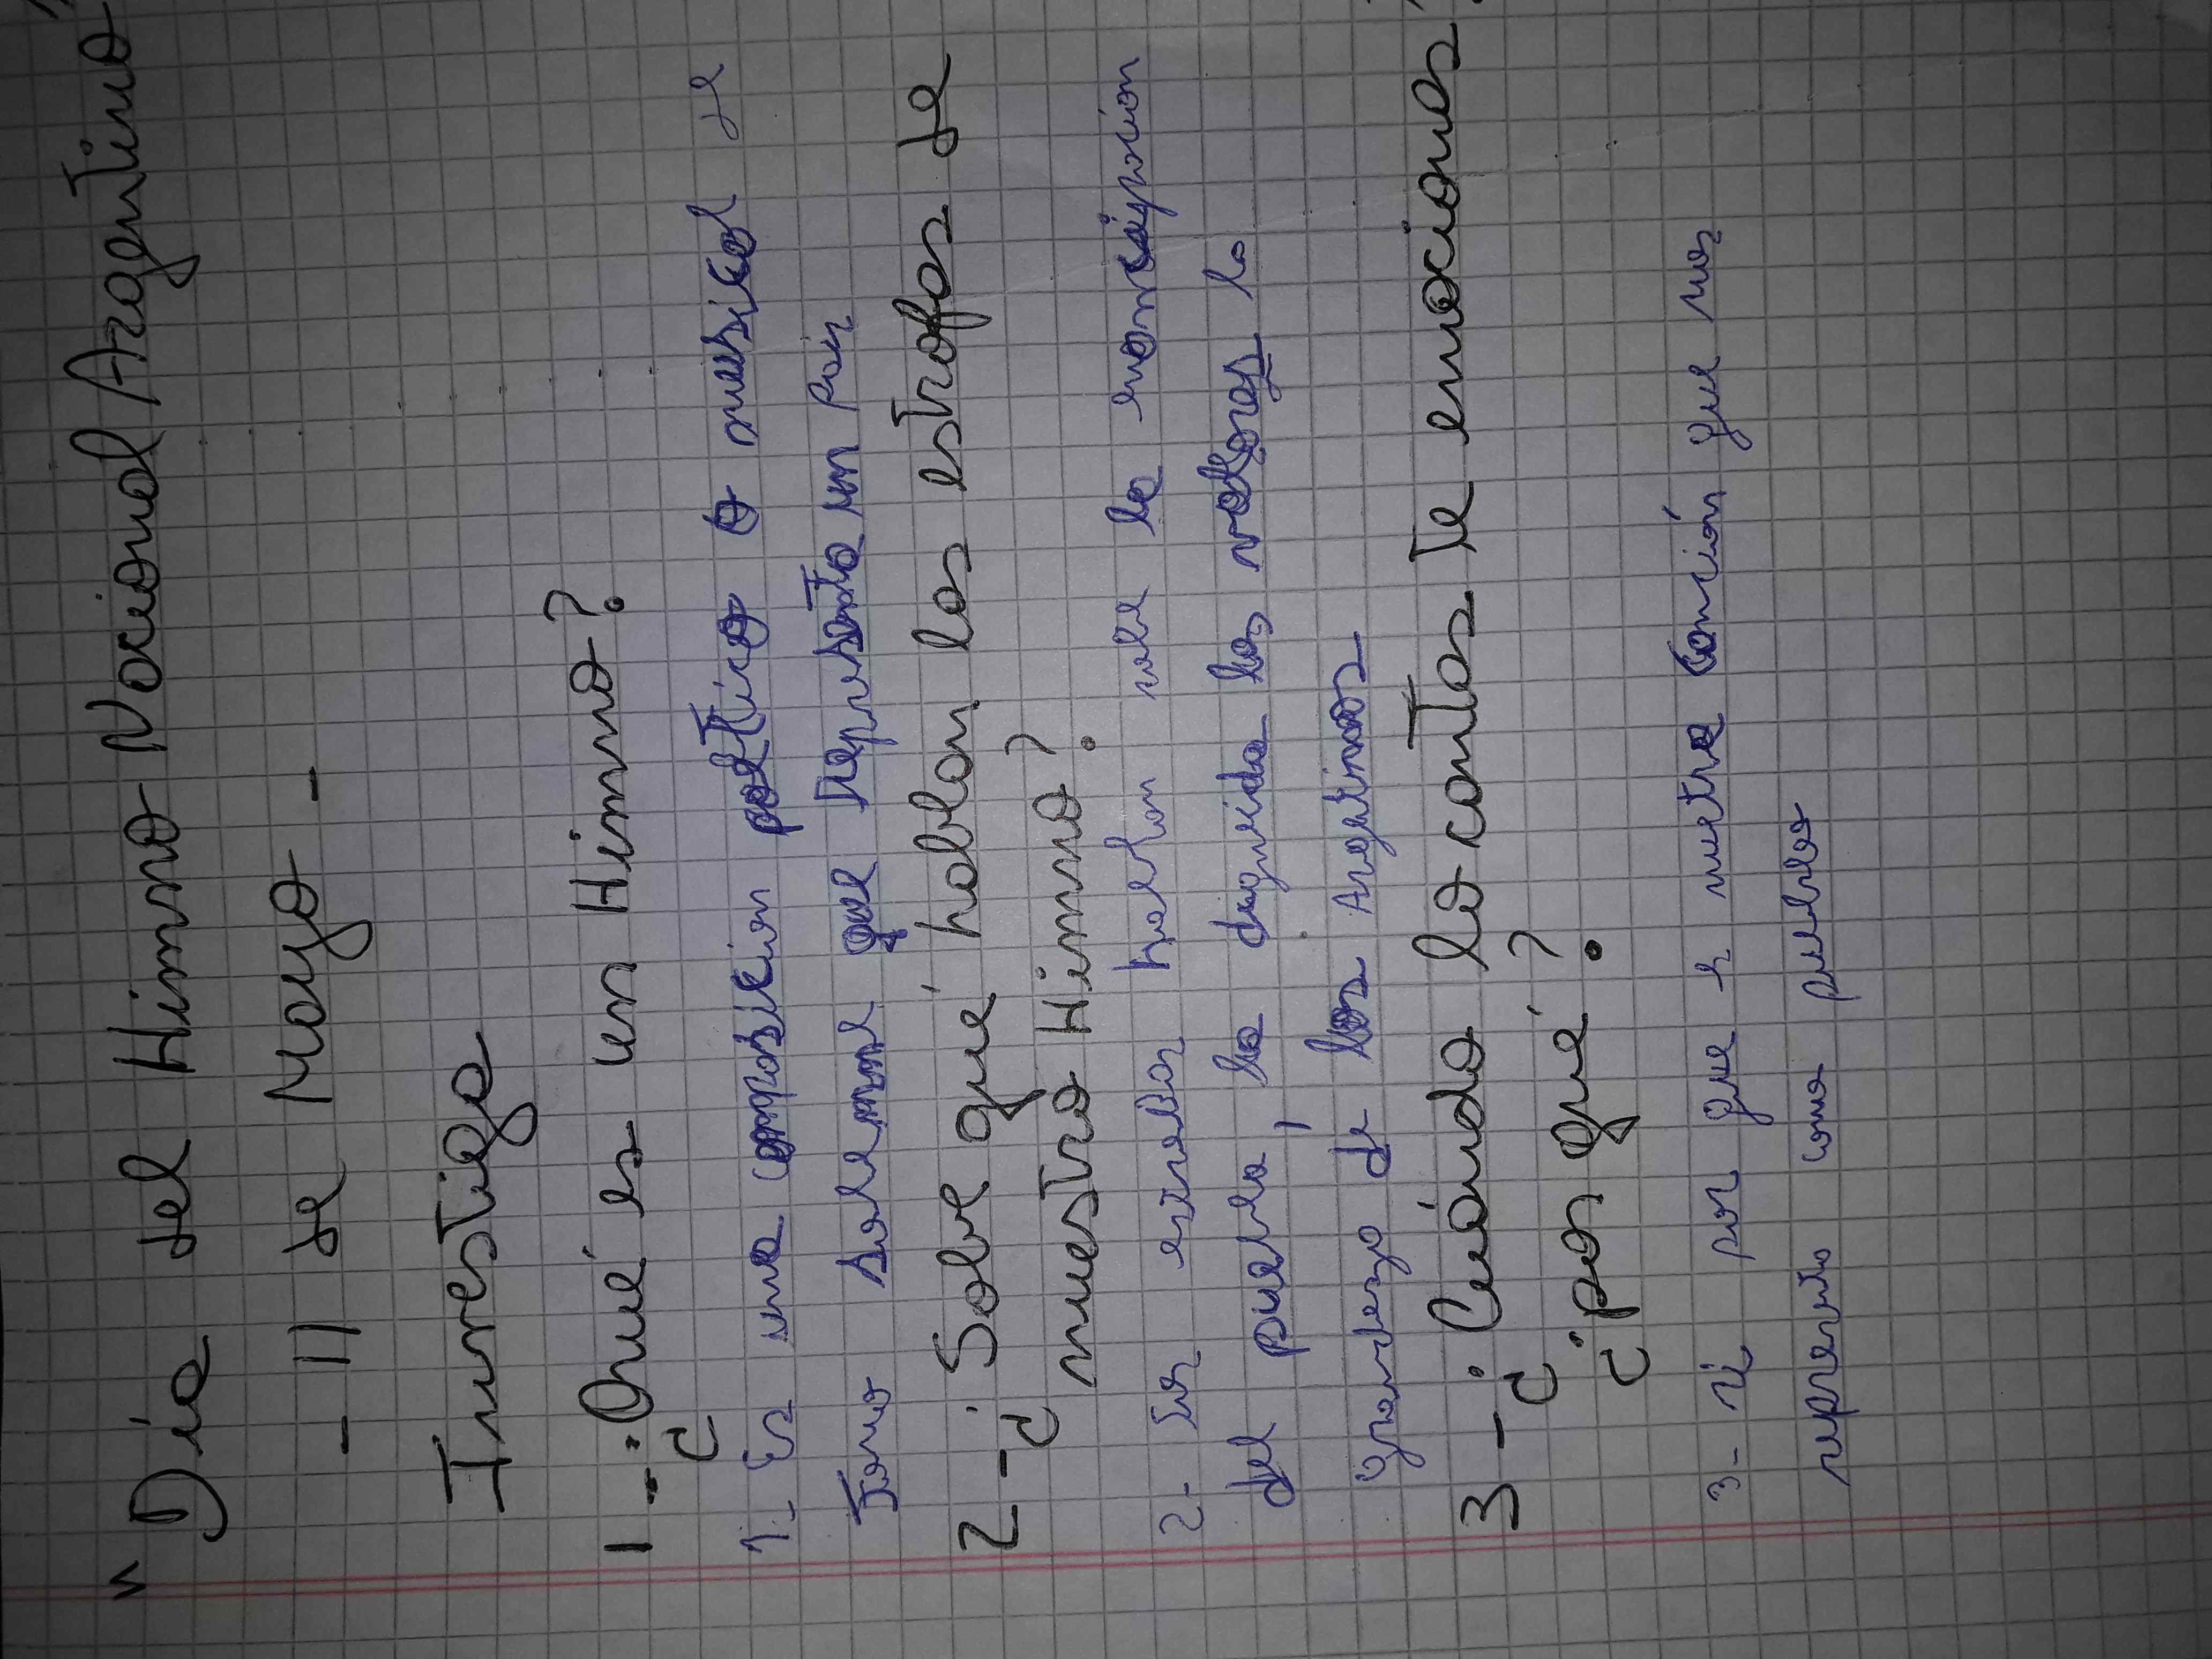 "Día del Himno Nacional Argentino"
- 11 de Mayo -
Investiga
1 - ¿Qué es un Himno?
1- Es una composición poético o musical de
Tono Solemne que Representa un País
2 - ¿Sobre qué hablan las estrofas de
nuestro Himno?
2- Las estrofas hablan sobre la emancipación
del pueblo, la dignidad los valores la
grandeza de los Argentinos
3 - ¿Cuándo lo cantas te emocionas?
¿por qué?
3- si por que es nuestra canción que nos
representa como pueblo